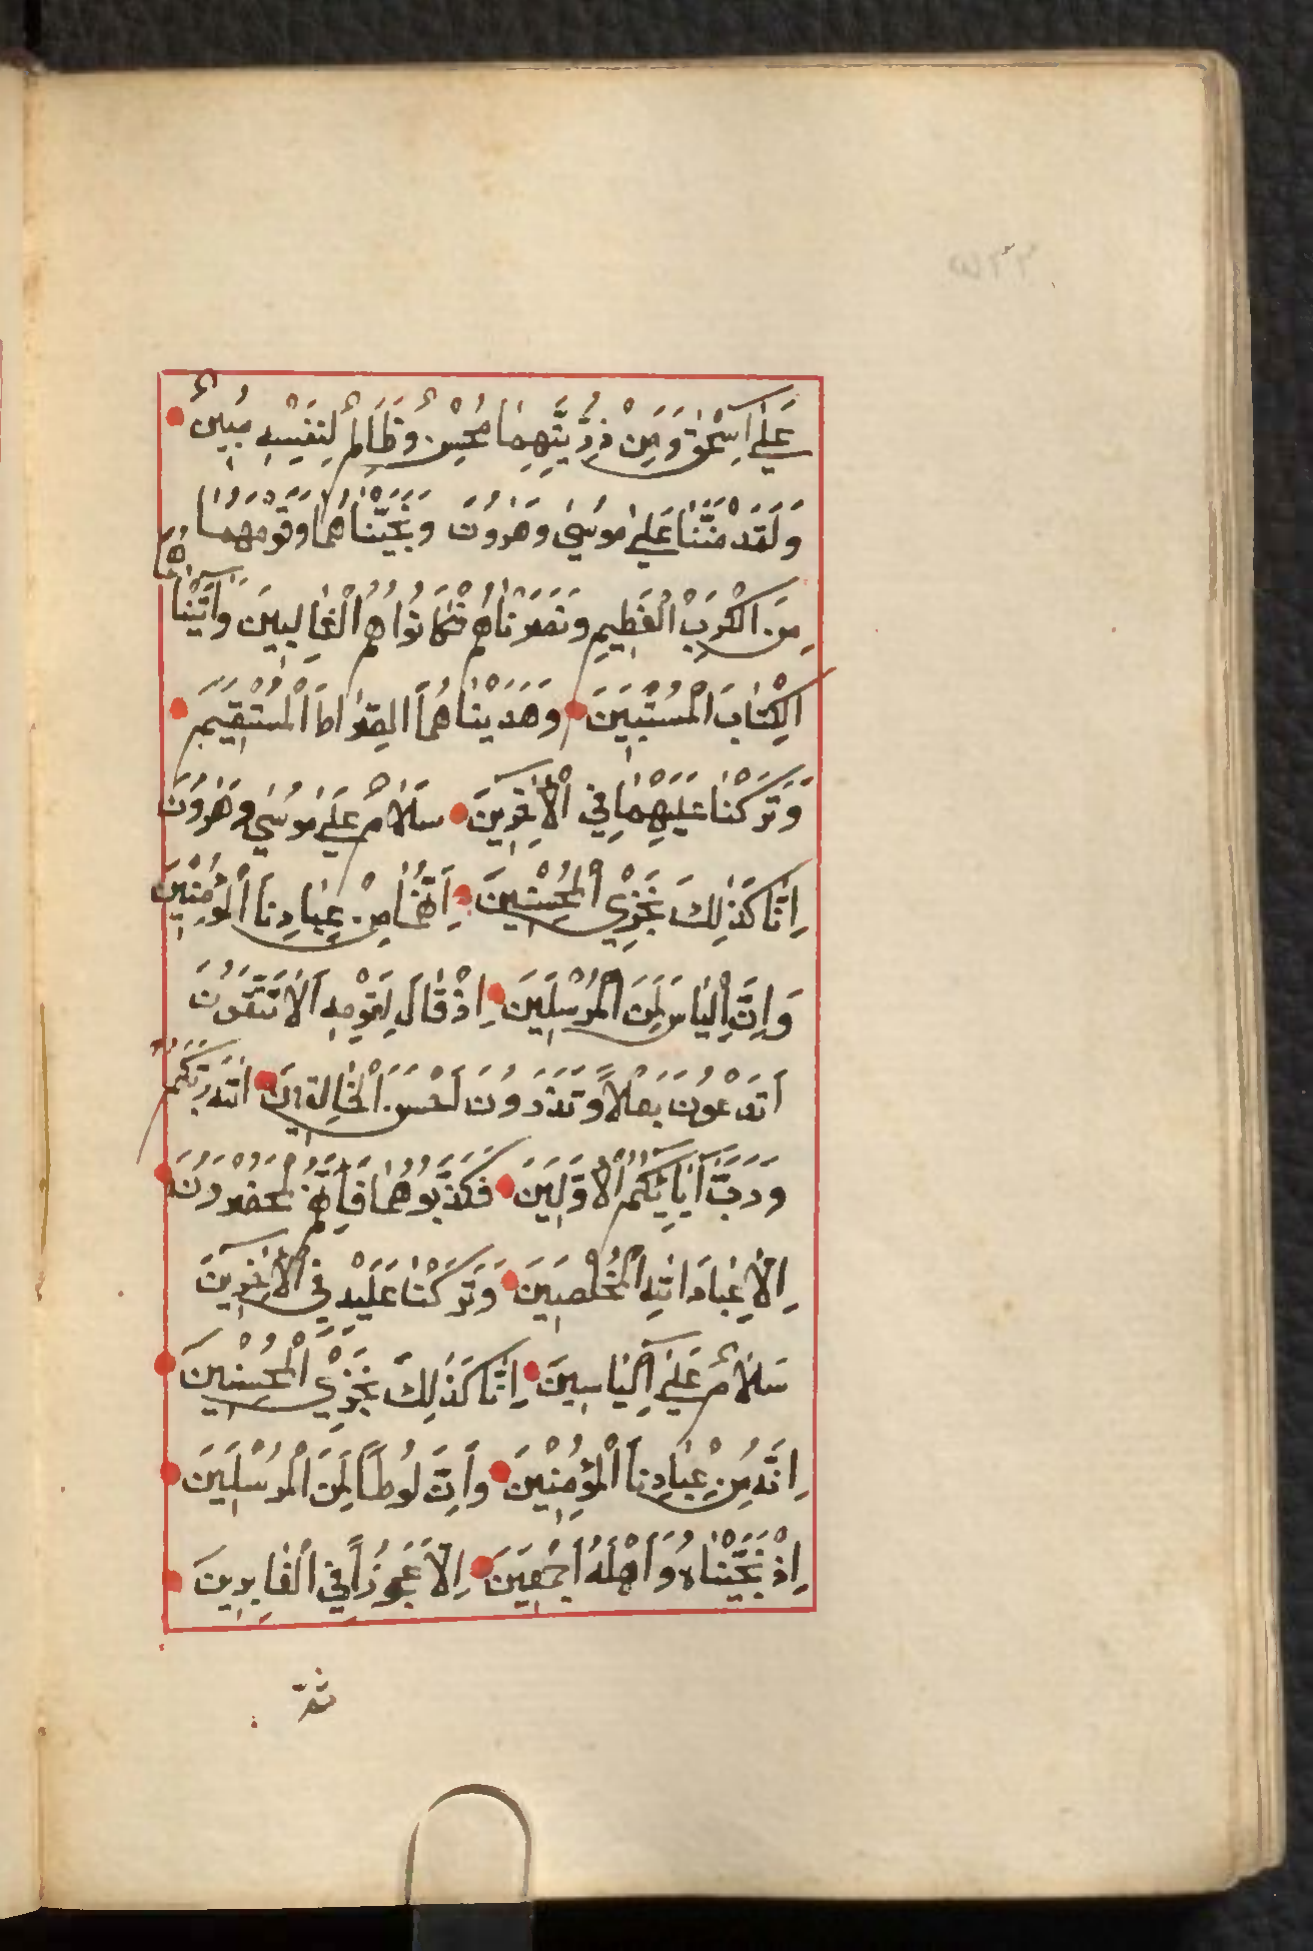 عَلٰٓى اِسْحٰقَ وَمِنْ ذُرِّيَّتِهِمَا مُحْسِنٌ وَظَالِمٌ لِنَفْسِهٖ مُبٖينٌ
وَلَقَدْ مَنَنَّا عَلٰى مُوسٰى وَهٰرُونَ وَنَجَّيْنَاهُمَا وَقَوْمَهُمَا
مِنَ الْكَرْبِ الْعَظِيمِ وَنَصَرْنَاهُمْ فَكَانُوا هُمُ الْغَالِبِينَ وَاٰتَيْنَاهُمَا
الْكِتَابَ الْمُسْتَبِينَ وَهَدَيْنَاهُمَا الصِّرَاطَ الْمُسْتَقِيمَ
وَتَرَكْنَا عَلَيْهِمَا فِي الْاٰخِرِينَ سَلَامٌ عَلٰى مُوسٰى وَهٰرُونَ
اِنَّا كَذٰلِكَ نَجْزِي الْمُحْسِنِينَ اِنَّهُمَا مِنْ عِبَادِنَا الْمُؤْمِنِينَ
وَاِنَّ اِلْيَاسَ لَمِنَ الْمُرْسَلِينَ اِذْ قَالَ لِقَوْمِهٖ اَلَا تَتَّقُونَ
اَتَدْعُونَ بَعْلًا وَتَذَرُونَ اَحْسَنَ الْخَالِقِينَ اَللّٰهَ رَبَّكُمْ
وَرَبَّ اٰبَائِكُمُ الْاَوَّلِينَ فَكَذَّبُوهُ فَاِنَّهُمْ لَمُحْضَرُونَ
اِلَّا عِبَادَ اللّٰهِ الْمُخْلَصِينَ وَتَرَكْنَا عَلَيْهِ فِي الْاٰخِرِينَ
سَلَامٌ عَلٰى اِلْيَاسِينَ اِنَّا كَذٰلِكَ نَجْزِي الْمُحْسِنِينَ
اِنَّهُ مِنْ عِبَادِنَا الْمُؤْمِنِينَ وَاِنَّ لُوطًا لَمِنَ الْمُرْسَلِينَ
اِذْ نَجَّيْنَاهُ وَاَهْلَهُ اَجْمَعِينَ اِلَّا عَجُوزًا فِي الْغَابِرِينَ
ثمّ